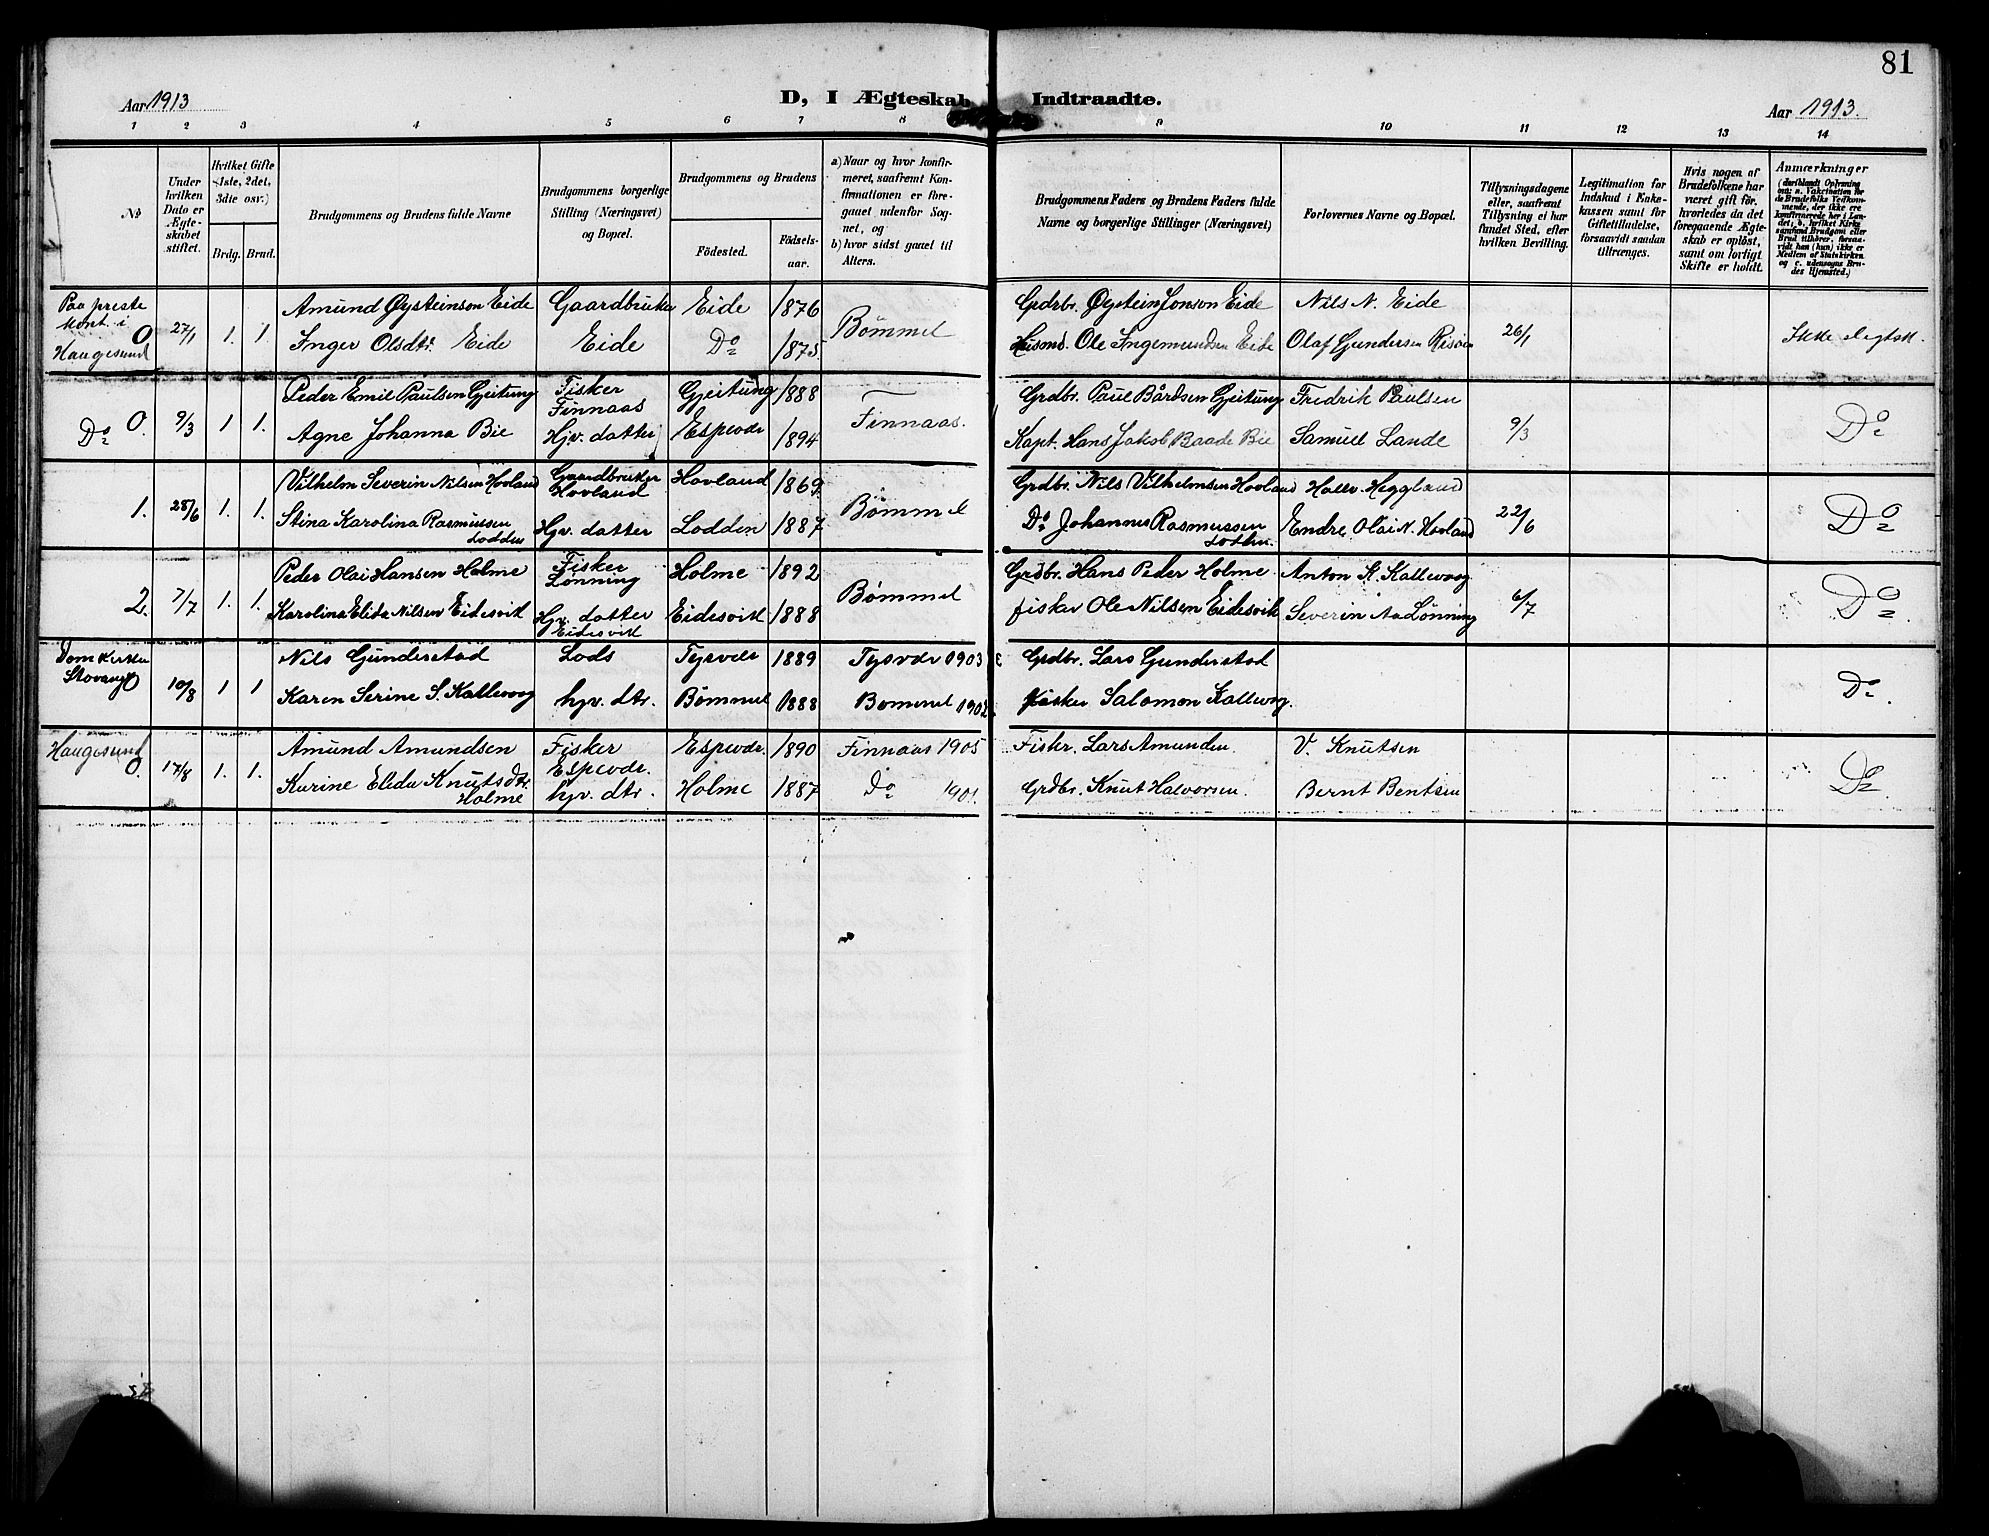 81
Aar 1913
D, I Ægteskab Indtraadte.
Aar 1913.
1 2 3 4 5 6 7 8 9 10 11 12 13 14
No
Under hvilken Dato er Ægteskabet stiftet.
Hvilket Gifte (1ste, 2det, 3die osv.)
Brdg. Brud.
Brudgommens og Brudens fulde Navne
Brudgommens borgerlige Stilling (Næringsvei) og Bopæl.
Brudgommens og Brudens
Födested.
Födsels-aar.
a) Naar og hvor konfirmeret, saafremt Konfirmationen er foregaaet udenfor Sognet, og
b) hvor sidst gaaet til Alters.
Brudgommens Faders og Brudens Faders fulde Navne og borgerlige Stillinger (Næringsvei)
Forlovernes Navne og Bopæl.
Tillysningsdagene eller, saafremt Tillysning ei har fundet Sted, efter hvilken Bevilling.
Legitimation for Indskud i Enkekassen samt for Giftetilladelse, forsaavidt saadan tiltrænges.
Hvis nogen af Brudefolkene har været gift før, hvorledes da det foregaaende Ægteskab er opløst, samt om lovligt Skifte er holdt.
Anmærkninger
Paa preste kont. i Haugesund
0 27/1 1. 1. Amund Øysteinson Eide Gaardbruker Eide 1876 Bømmel Grdbr. Øystein Jonson Eide Nils N. Eide 26/1 Ikke slegtsk.
Inger Olsdtr. Eide Eide Do 1875 Husmd. Ole Ingemundsen Eide Olaf Gundersen
Do 0. 9/3 1 1. Peder Emil Paulsen Gjeitung Fisker Finnaas Gjeitung 1888 Finnaas. Grdbr. Paul Bårdsen Gjeitung Fredrik Paulsen 9/3 Do
Agne Johanna Bie Hjv. datter Espevær 1894 Kapt. Hans Jakob Baade Bie Samuel Lande
1. 28/6 1. 1. Vilhelm Severin Nilsen Hovland Gaardbruker Hovland Hovland 1869 Bømmel Grdbr. Nils Vilhelmsen Hovland Hallv. Heggland 22/6 Do
Stina Karolina Rasmussen Lodden Hjv. datter Lodden 1887 Do Johannes Rasmussen Lodden. Endre Olai N. Hovland
2. 7/7 1. 1. Peder Olai Hansen Holme Fisker Lønning Holme 1892 Bømmel Grdbr. Hans Peder Holme Anton K. Kallevaag 6/7 Do
Karolina Elida Nilsen Eidesvik Hjv. datter Eidesvik Eidesvik 1888 fisker Ole Nilsen Eidesvik Severin Aa Lønning
Domkirken Stavanger
0 10/8 1 1 Nils Gunderstad Lods Tysvær 1889 Tysvær 1903 Grdbr. Lars Gunderstad Do.
Karen Serine S. Kallevaag hjv. dtr. Bømmel 1888 Bømmel 1902 Fisker Salomon Kallevag.
Haugesund
0. 17/8 1. 1. Amund Amundsen Fisker Espevær. Espevær. 1890 Finnaas 1905 Fisker. Lars Amunden. V. Knutsen Do
Karine Elida Knutsdtr. Holme hjv. dtr. Holme 1887 Do 1901. Grdbr. Knut Halvorsen. Bernt Bentsen